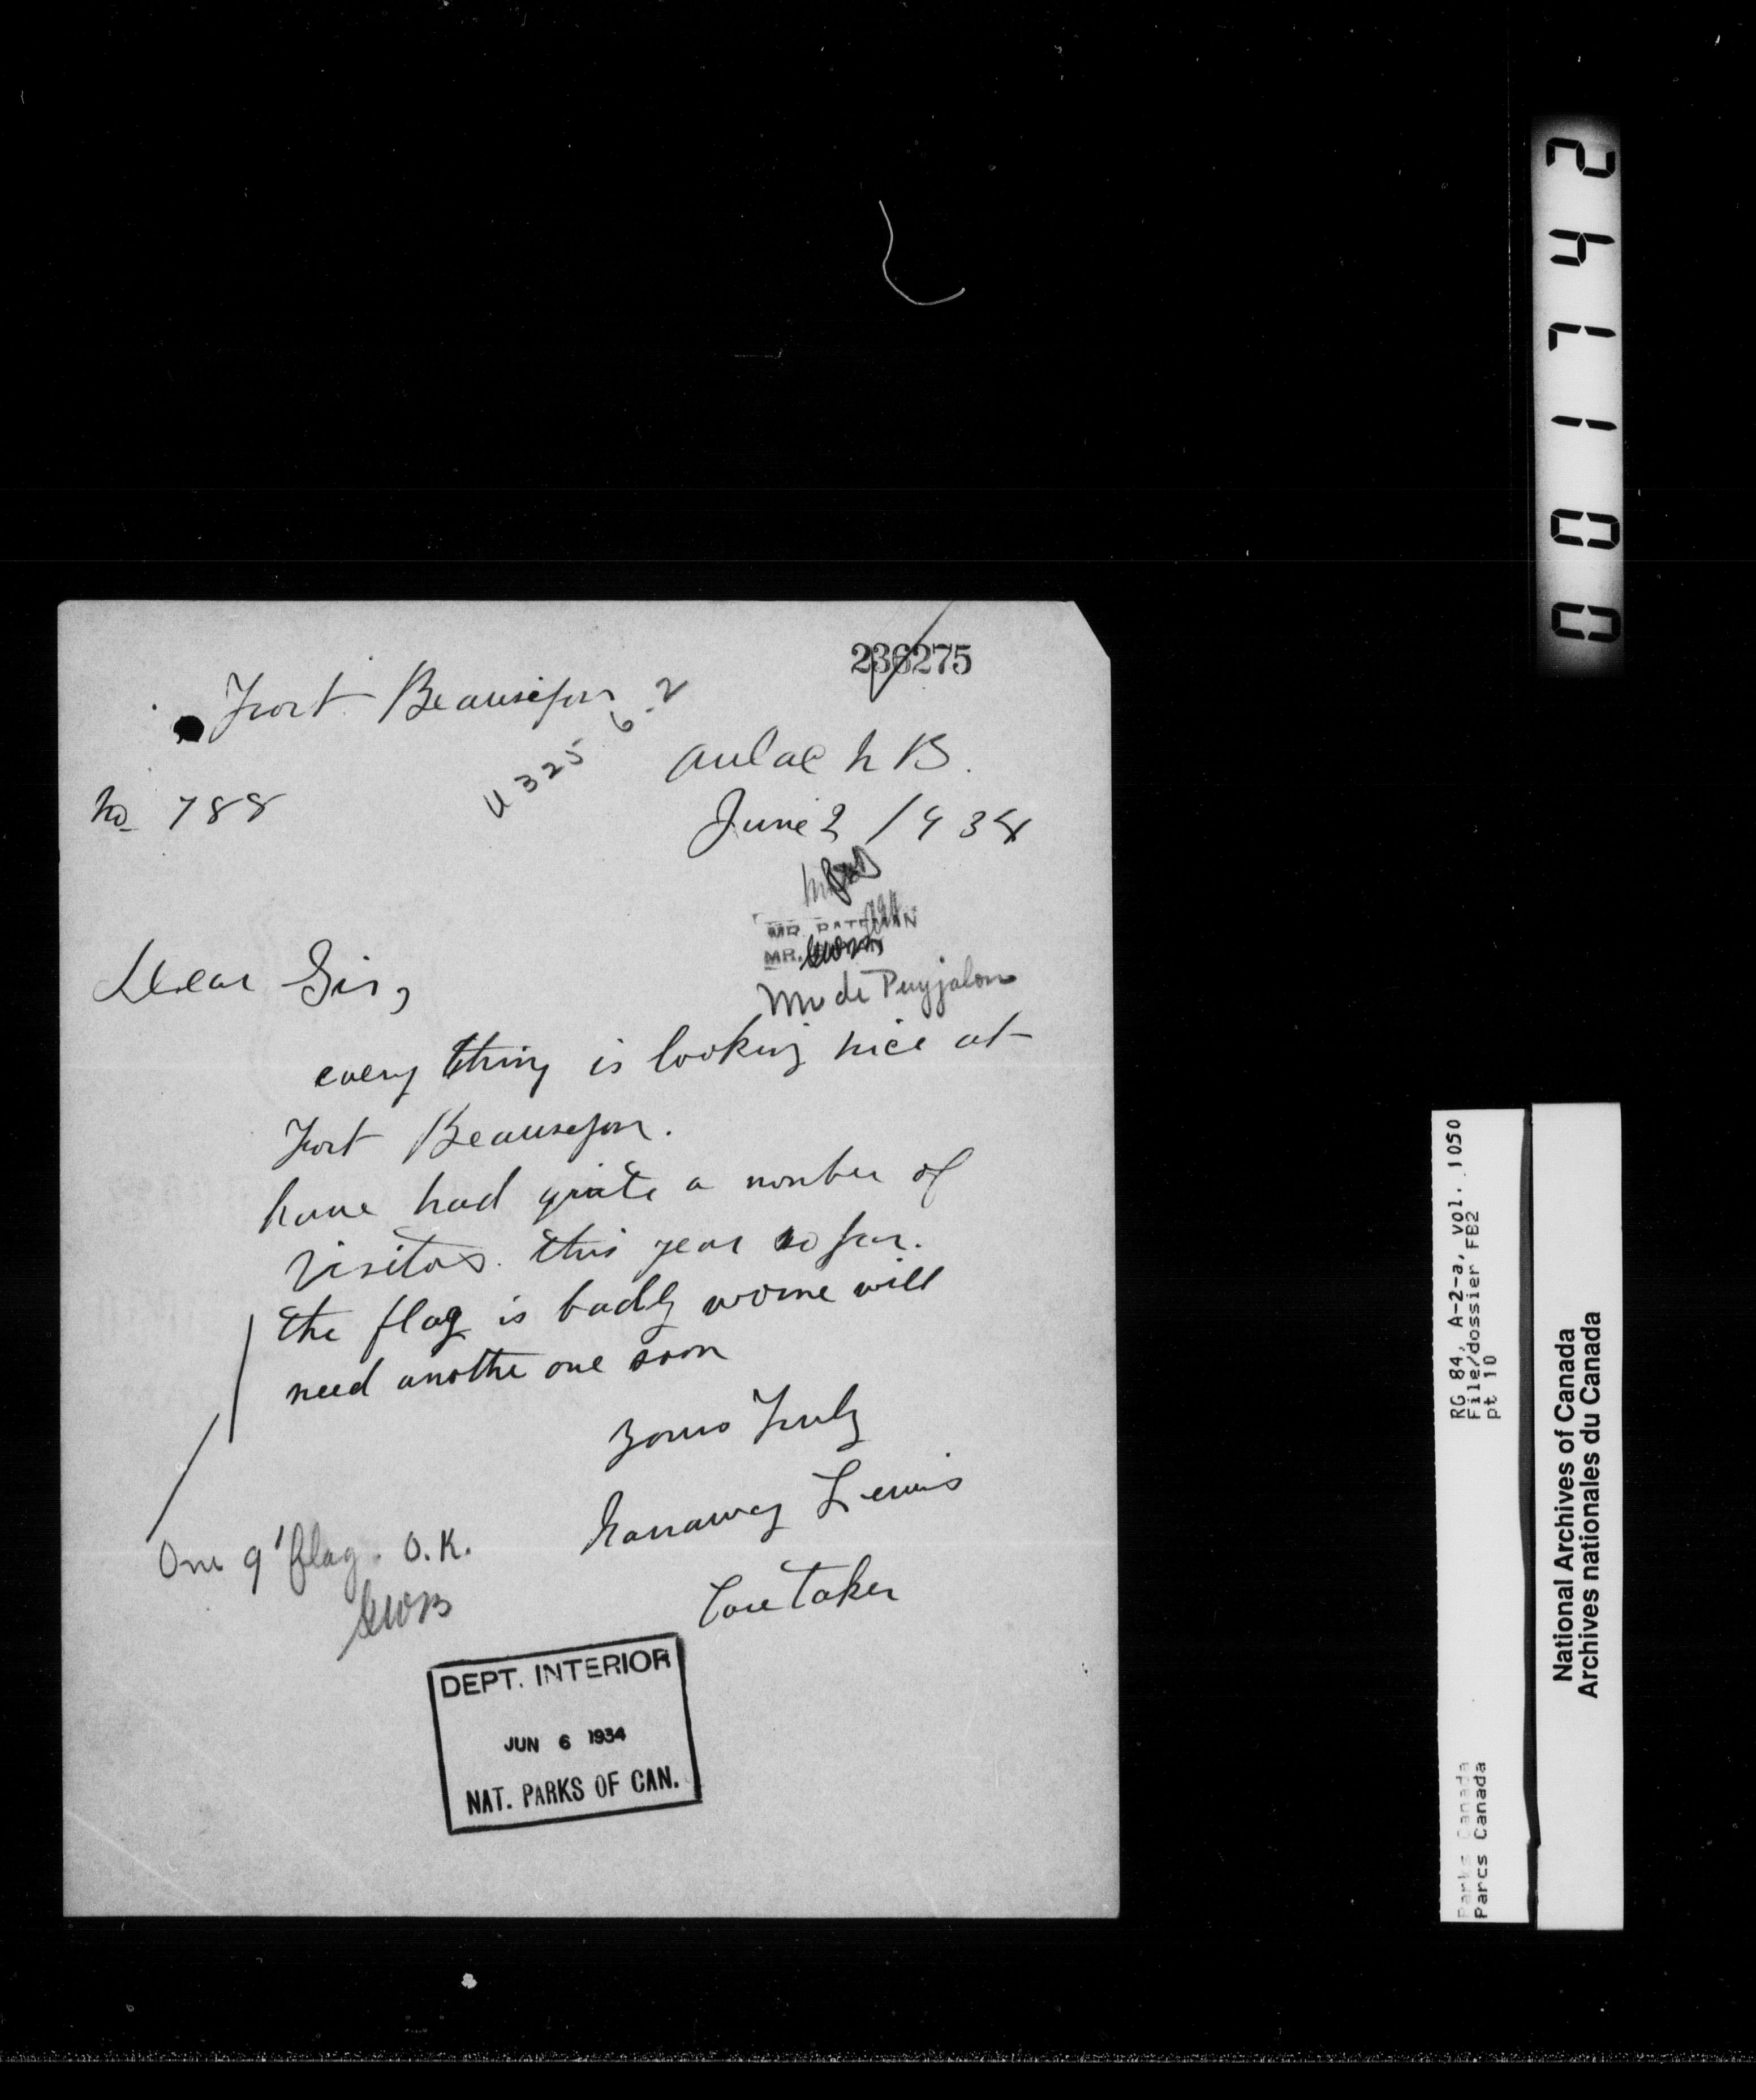 236275
Fort Beausejour
U 325 6-2
Aulac N B.
No 788
June 2 1934
MR. BATEMAN
MR.
Mr de Puyjalon
Dear Sir,
every thing is looking nice at
Fort Beausejour.
have had quite a number of
visitors. this year so far.
the flag is badly worne will
need anothe one soon
Yours Truly
Hannaway Lewis
Care Taker
One 9' flag. O.K.
DEPT. INTERIOR
JUN 6 1934
NAT. PARKS OF CAN.
001742
RG 84, A-2-a, Vol. 1050
File/dossier FB2
pt 10
Parks Canada
Parcs Canada
National Archives of Canada
Archives nationales du Canada